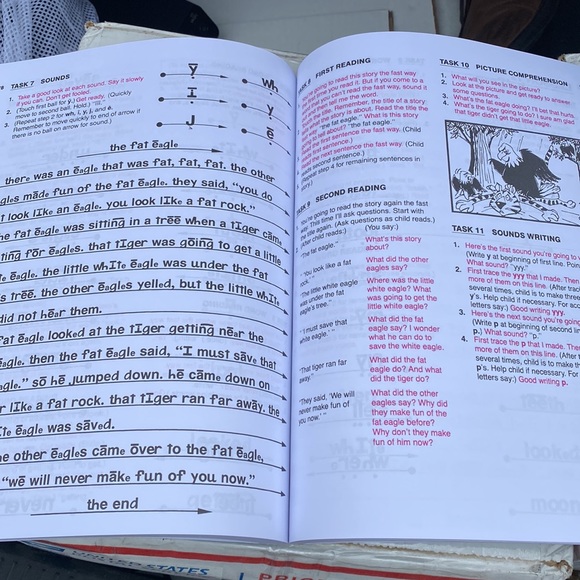 TASK 7 SOUNDS
1. Take a good look at each sound. Say it slowly
if you can. Don't get fooled.
2. (Touch first ball for y.) Get ready. (Quickly
move to second ball. Hold.) "īīī."
3. (Repeat step 2 for wh, i, y, j, and ē.
Remember to move quickly to end of arrow if
there is no ball on arrow for sound.)
ȳ
I
J
wh
y
ē
the fat ēagle
there was an ēagle that was fat, fat, fat. the other
gles māde fun of the fat ēagle. they said, "you do
t look lIke an ēagle. you look lIke a fat rock."
he fat ēagle was sitting in a trēē when a tIger cāme
ting for ēagles. that tIger was gōing to get a little
te ēagle. the little whIte ēagle was under the fat
s trēē. the other ēagles yelled, but the little whIte
did not hēar them.
fat ēagle looked at the tIger getting nēar the
ēagle. then the fat ēagle said, "I must sāve that
agle." sō hē jumped down. hē cāme down on
r lIke a fat rock. that tIger ran far away. the
Ite ēagle was sāved.
he other ēagles cāme ōver to the fat ēagle.
"wē will never māke fun of you now."
the end
FIRST READING
going to read this story the fast way
you read it. But if you come to a
you can't read the fast way, sound it
tell me the word.
Remember, the title of a story
the story is about. Read the title the
"the fat eagle." What is this story
about? "the fat eagle."
the first sentence the fast way. (Child
the next sentence the fast way. (Child
reads second sentence.)
(Repeat step 4 for remaining sentences in
story.)
TASK 9 SECOND READING
You're going to read the story again the fast
way. This time I'll ask questions. Start with
the title again. (Ask questions as child reads.)
(After child reads:) (You say:)
"The fat eagle."
What's this story
about?
"'You look like a fat
rock.'"
What did the other
eagles say?
"The little white eagle
was under the fat
eagle's tree."
Where was the little
white eagle? What
was going to get the
little white eagle?
"'I must save that
white eagle.'"
What did the fat
eagle say? I wonder
what he can do to
save the white eagle.
"That tiger ran far
away."
What did the fat
eagle do? And what
did the tiger do?
"They said, 'We will
never make fun of
you now.'"
What did the other
eagles say? Why did
they make fun of the
fat eagle before?
Why don't they make
fun of him now?
TASK 10 PICTURE COMPREHENSION
1. What will you see in the picture?
2. Look at the picture and get ready to answer
some questions.
3. What's the fat eagle doing? I'll bet that hurts.
4. What's the tiger going to do? I sure am glad
that tiger didn't get that little eagle.
TASK 11 SOUNDS WRITING
1. Here's the first sound you're going to
(Write y at beginning of first line. Point
What sound? "yyy."
2. First trace the yyy that I made. Then
more of them on this line. (After
several times, child is to make three
y's. Help child if necessary. For
letters say:) Good writing yyy.
3. Here's the next sound you're going
(Write p at beginning of second
p.) What sound? "p."
4. First trace the p that I made. Then
more of them on this line. (After
several times, child is to make
p's. Help child if necessary. For
letters say:) Good writing p.
UNITED STATES